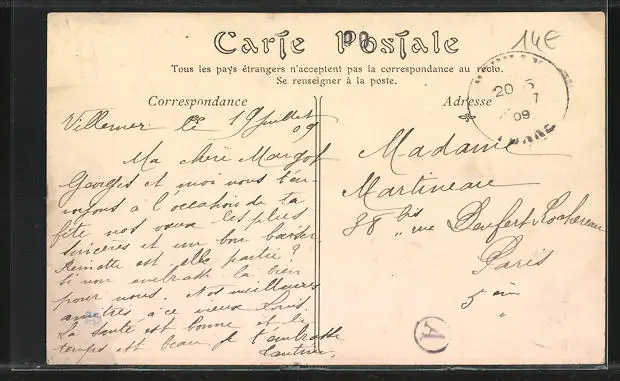 14€
Carte Postale
Tous les pays étrangers n'acceptent pas la correspondance au recto.
Se renseigner à la poste.
Correspondance
Villemer le 19 Juillet 09
Ma chère Margot
Georges et moi nous t'en-
voyons à l'occasion de ta
fête nos vœux les plus
sincères et un bon baiser
est elle partie ?
Si non embrasse la bien
pour nous. Nos meilleures
amitiés à ce vieux Louis.
La santé est bonne et le
temps est beau. Je t'embrasse
Adresse
Madame
Martineau
88 bis rue Denfert-Rochereau
Paris
5 ème
20
7
09
YONNE
A